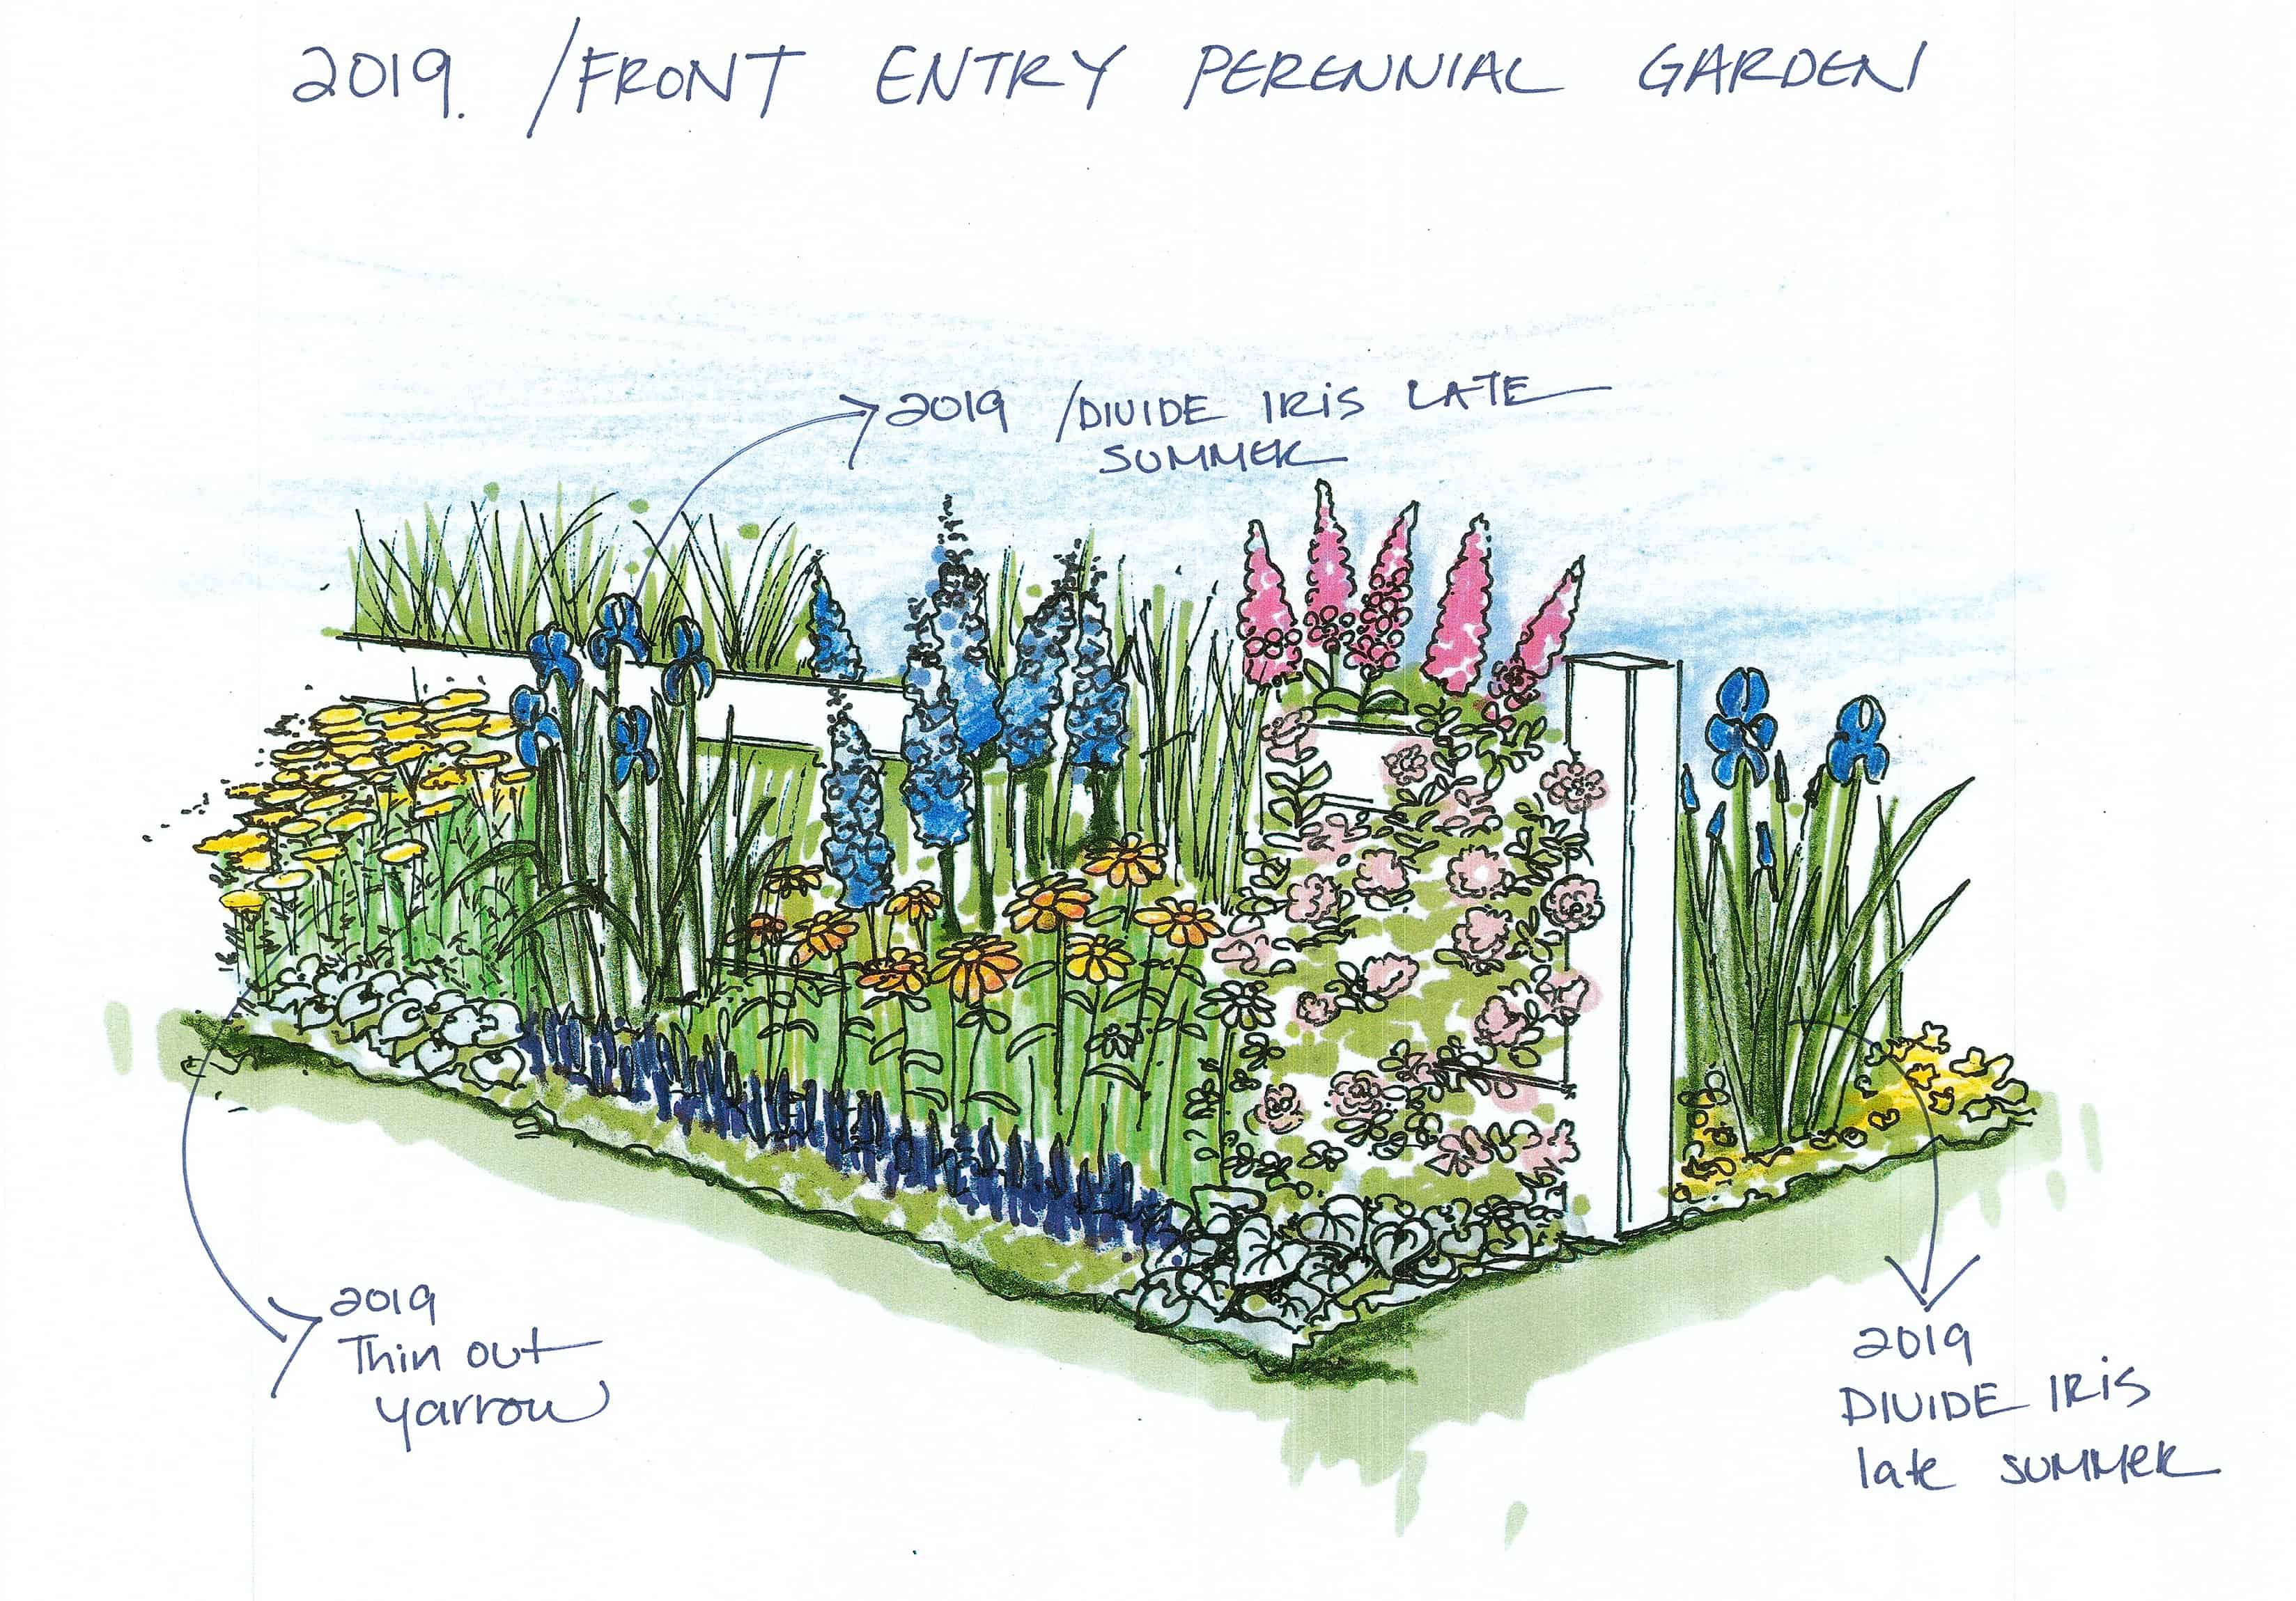 2019. /FRONT ENTRY PERENNIAL GARDEN
2019 /DIVIDE IRiS LATE
SUMMER
2019
Thin out
yarrow
2019
DIVIDE IRiS
late SUMMeR